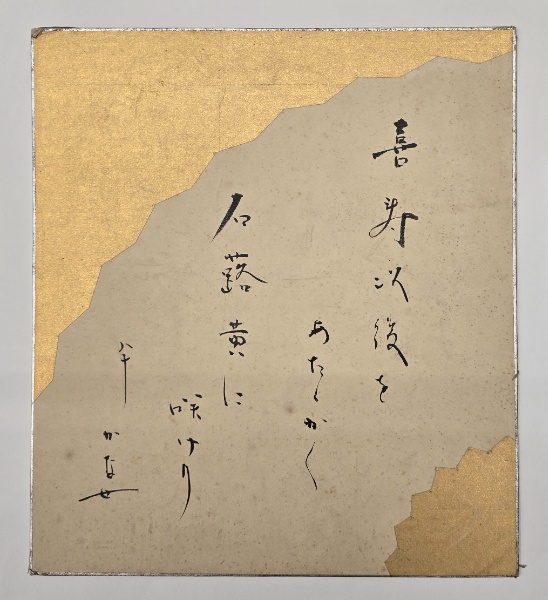 喜寿以後を
あたゝかく
石蕗黄に
咲けり
八十 かな女